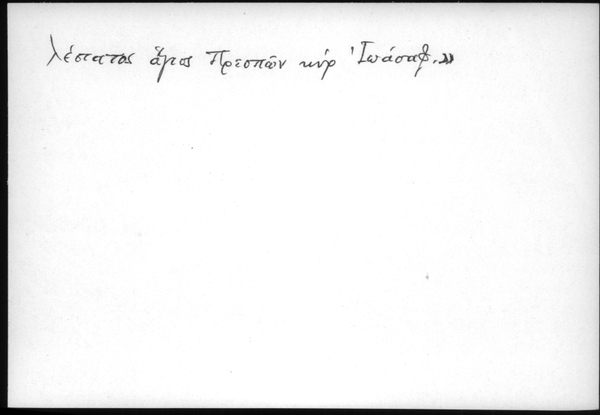 λέστατος ἅγιος Πρεσπῶν κὺρ Ἰωάσαφ.»